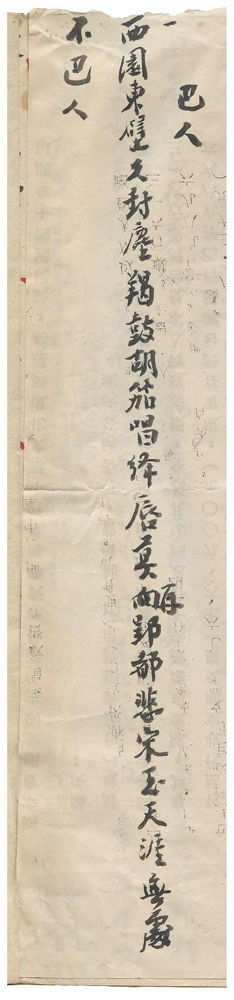 一
巴人
西園東壁久封塵羯鼓胡笳唱絳唇莫再向郢都悲宋玉天涯無處
不巴人